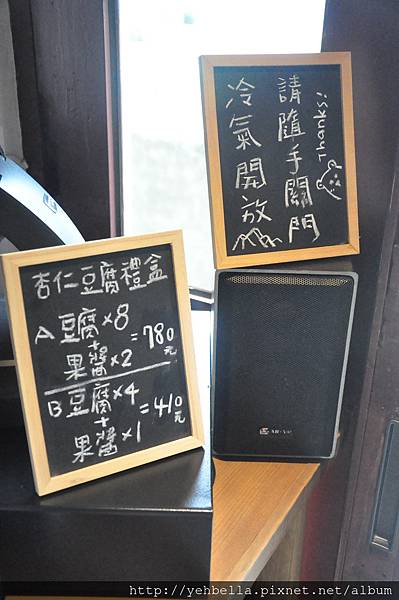 請隨手關門
冷氣開放
Thanks!
杏仁豆腐禮盒
A 豆腐×8
+
果醬×2
=780元
B 豆腐×4
+
果醬×1
=410元
http://yehbella.pixnet.net/album